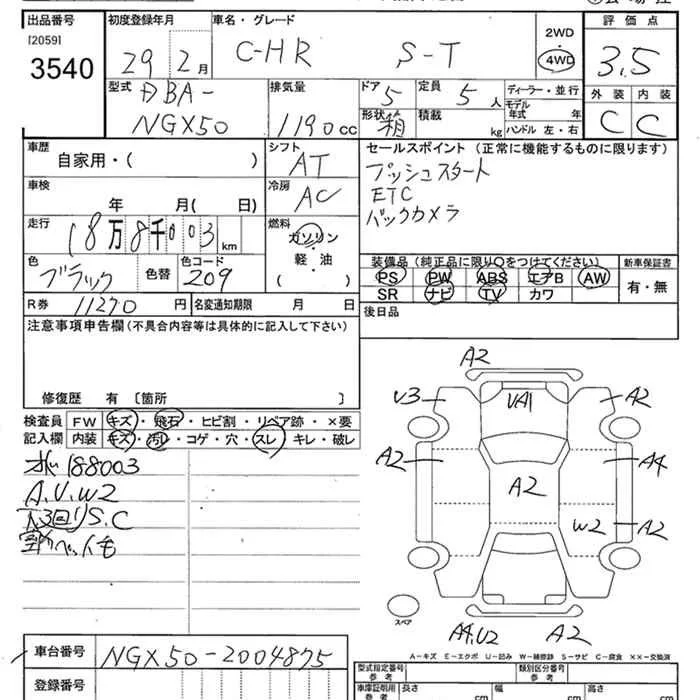 出品番号 初度登録年月 車名・グレード 評価点
[2059]
3540
29 2月 C-HR S-T
2WD
4WD
3.5
型式 排気量 ドア 定員 ディーラー・並行 外装 内装
DBA-
NGX50
1190cc
5 5人
形状 積載 モデル年式 年
箱 kg ハンドル 左・右
C C
車歴 シフト セールスポイント (正常に機能するものに限ります)
自家用・( ) AT
プッシュスタート
ETC
バックカメラ
車検 冷房
年 月( 日) AC
走行 燃料
18万8千003km ガソリン
軽・油
( )
色 色替 色コード
ブラック 209
装備品(純正品に限り○をつけてください) 新車保証書
PS PW ABS エアB AW 有・無
SR ナビ TV カワ
R券 11270円 名変通知期限 月 日 後日品
注意事項申告欄(不具合内容等は具体的に記入して下さい)
修復歴 有 〔箇所 〕
検査員 FW キズ・飛石・ヒビ割・リペア跡・×要
記入欄 内装 キズ・汚レ・コゲ・穴・スレ・キレ・破レ
188003
A.U.W2
S.C
A2
U3 UA1 A2
A2 A2 A4
W2 A2
スペア
A4.U2 A2
A-キズ E-エクボ U-凹み W-補修跡 S-サビ C-腐食 ××-交換済
車台番号 NGX50-2004875
登録番号
型式指定番号 参考 類別区分番号 参考
車庫証明用 参考 長さ cm 幅 cm 高さ cm